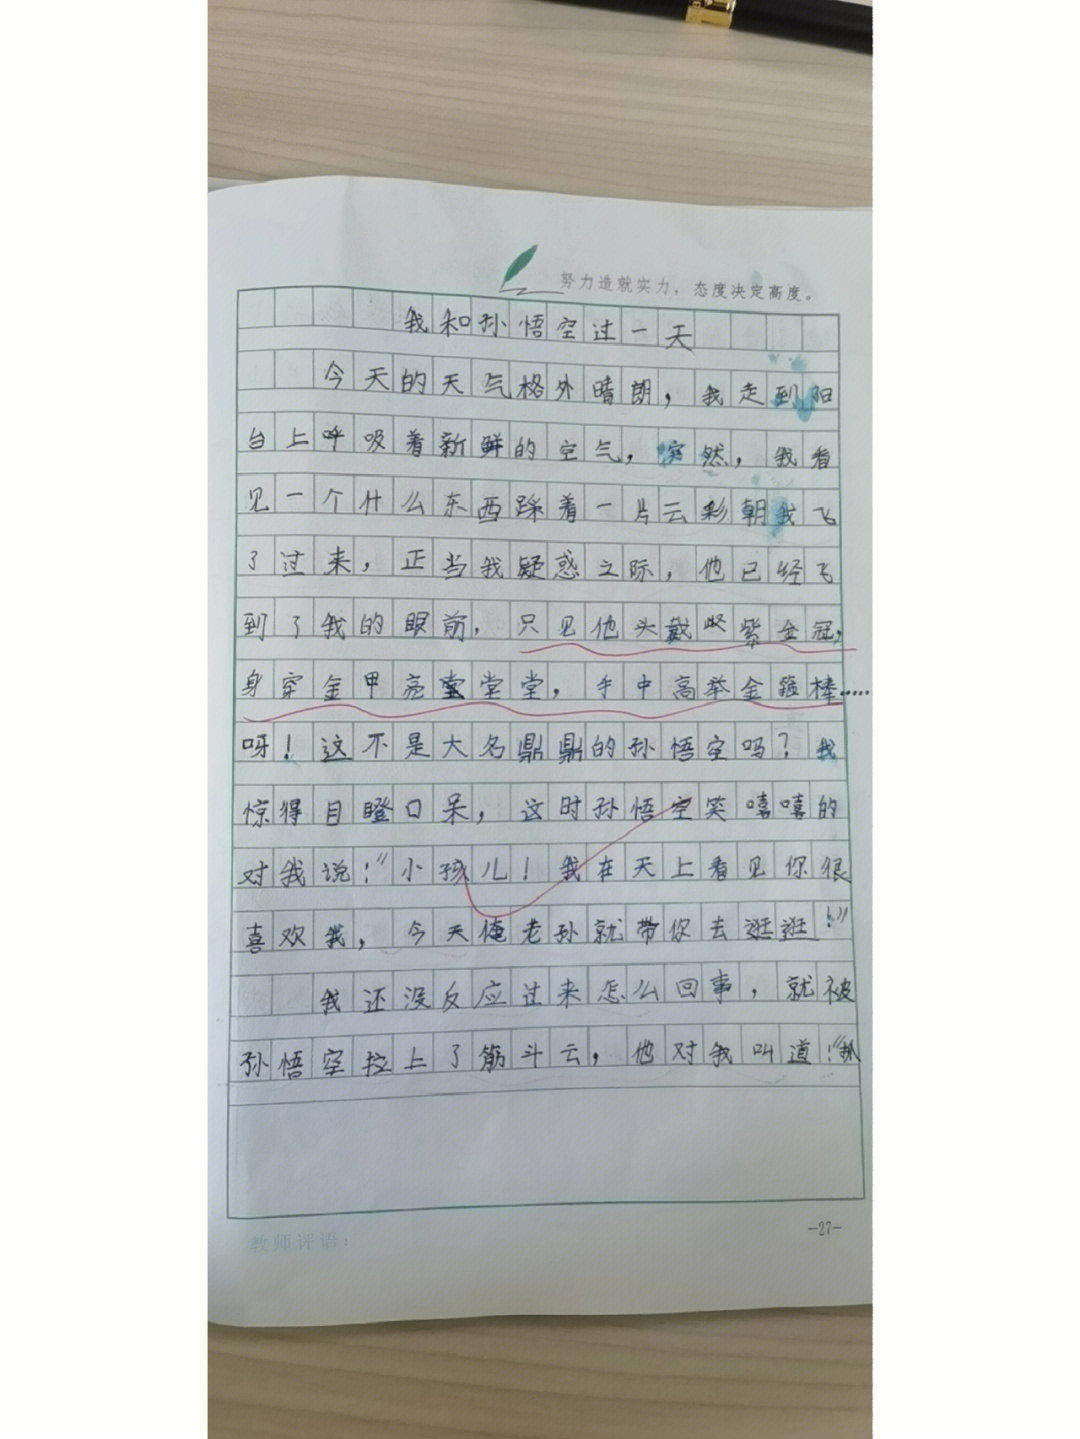 努力造就实力，态度决定高度。
我和孙悟空过一天
今天的天气格外晴朗，我走到阳
台上呼吸着新鲜的空气，突然，我看
见一个什么东西踩着一片云彩朝我飞
了过来，正当我疑惑之际，他已经飞
到了我的眼前，只见他头戴紫金冠，
身穿金甲亮堂堂堂，手中高举金箍棒……
呀！这不是大名鼎鼎的孙悟空吗？我
惊得目瞪口呆，这时孙悟空笑嘻嘻的
对我说：“小孩儿！我在天上看见你很
喜欢我，今天俺老孙就带你去逛逛！”
我还没反应过来怎么回事，就被
孙悟空拉上了筋斗云，他对我叫道：“趴
教师评语：
-27-